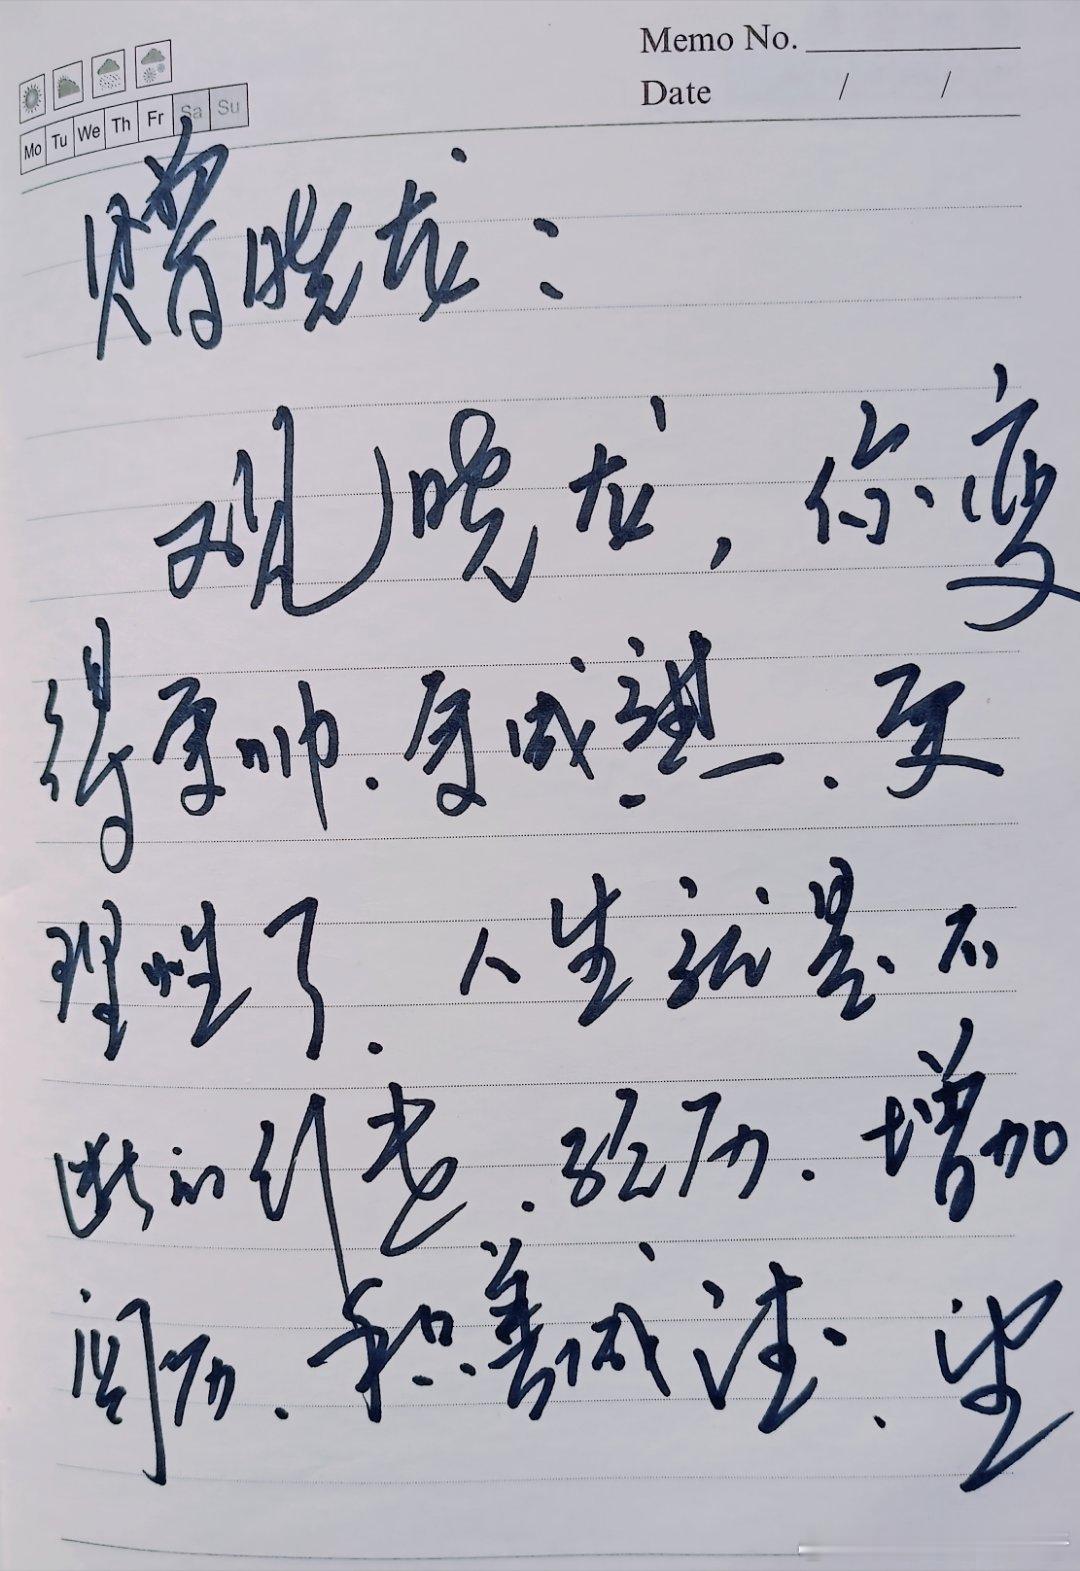 Memo No.
Date / /
Mo Tu We Th Fr Sa Su
赠晓龙：
观晓龙，你变
得更帅.更成熟.更
理性了.人生就是不
断的行走.经历.增加
阅历.积善成德.望